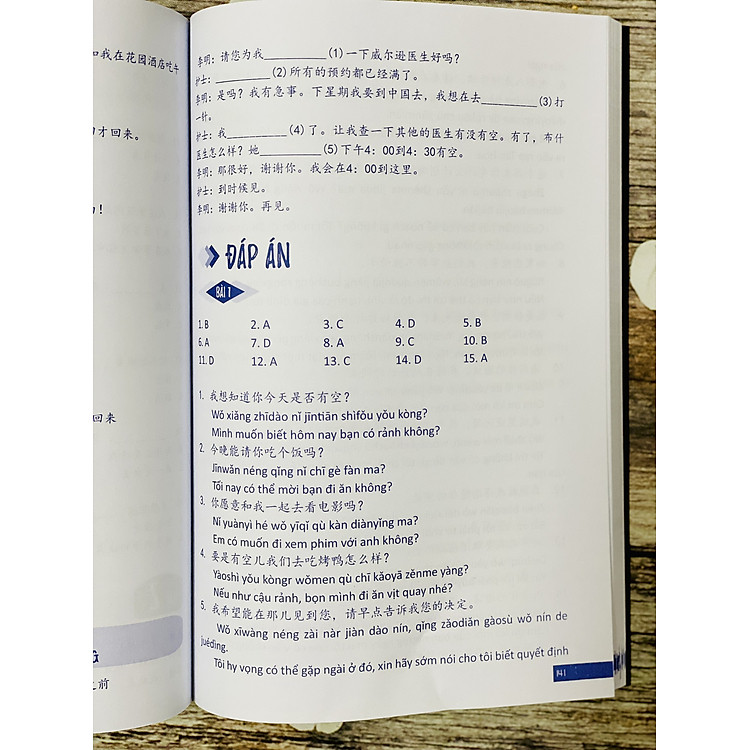 和我在花园酒店吃午
才回来。
回来
之前
李明：请您为我__________(1)一下威尔逊医生好吗？
护士：__________(2)所有的预约都已经满了。
李明：是吗？我有急事。下星期我要到中国去，我想在去__________(3)打
一针。
护士：我__________(4)了。让我查一下其他的医生有没有空。有了，布什
医生怎么样？她__________(5)下午4：00到4：30有空。
李明：那很好，谢谢你。我会在4：00到这里。
护士：到时候见。
李明：谢谢你。再见。
ĐÁP ÁN
BÀI 1
1. B 2. A 3. C 4. D 5. B
6. A 7. D 8. A 9. C 10. B
11. D 12. A 13. C 14. D 15. A
1. 我想知道你今天是否有空？
Wǒ xiǎng zhīdào nǐ jīntiān shìfǒu yǒu kòng?
Mình muốn biết hôm nay bạn có rảnh không?
2. 今晚能请你吃个饭吗？
Jīnwǎn néng qǐng nǐ chī gè fàn ma?
Tối nay có thể mời bạn đi ăn không?
3. 你愿意和我一起去看电影吗？
Nǐ yuànyì hé wǒ yīqǐ qù kàn diànyǐng ma?
Em có muốn đi xem phim với anh không?
4. 要是有空儿我们去吃烤鸭怎么样？
Yàoshi yǒu kòngr wǒmen qù chī kǎoyā zěnme yàng?
Nếu như cậu rảnh, bọn mình đi ăn vịt quay nhé?
5. 我希望能在那儿见到您，请早点告诉我您的决定。
Wǒ xīwàng néng zài nàr jiàn dào nín, qǐng zǎodiǎn gàosù wǒ nín de
juédìng.
Tôi hy vọng có thể gặp ngài ở đó, xin hãy sớm nói cho tôi biết quyết định
141